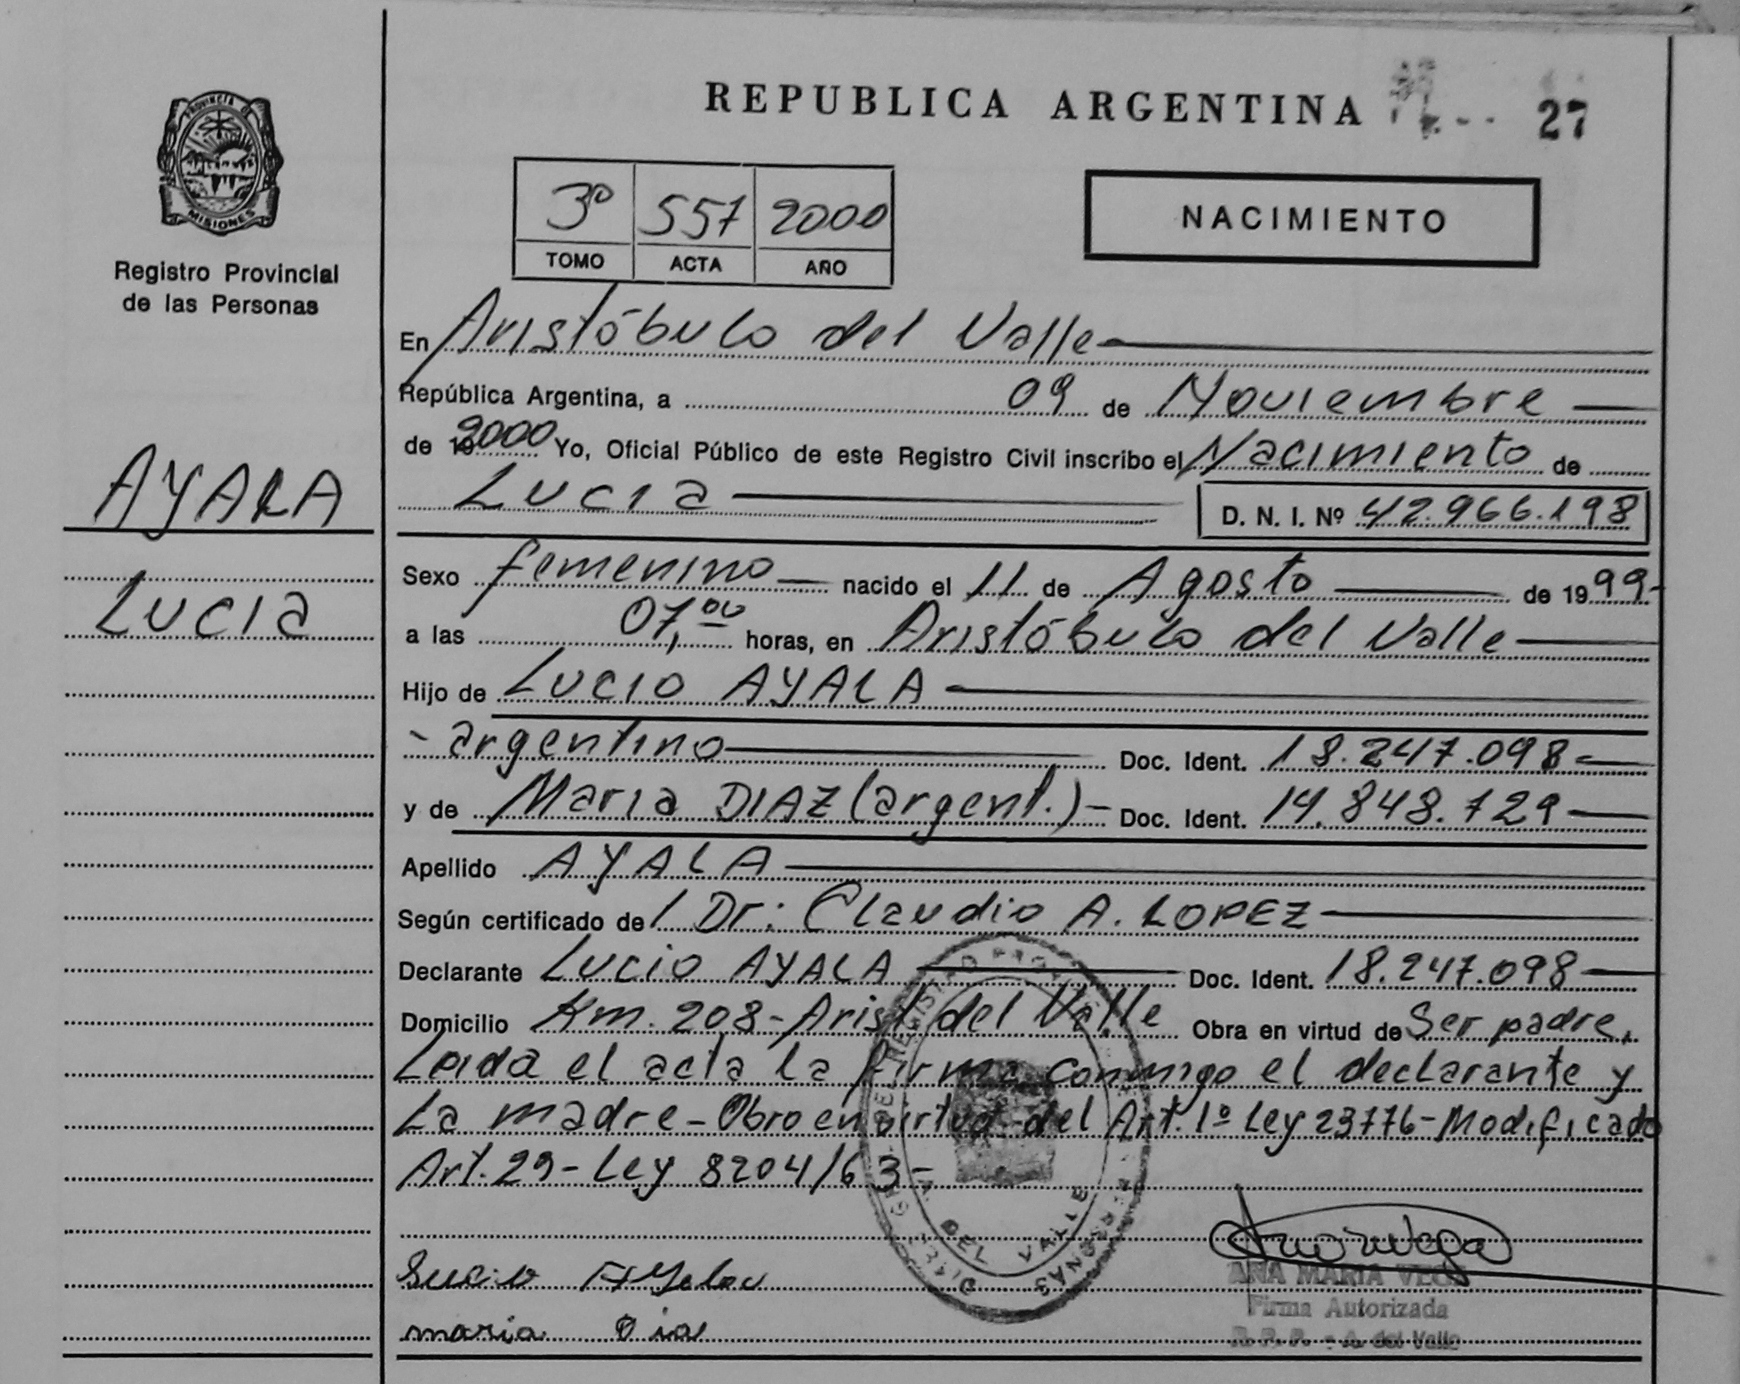 REPUBLICA ARGENTINA
27
PROVINCIA DE
MISIONES
Registro Provincial
de las Personas
3º 557 2000
TOMO ACTA AÑO
NACIMIENTO
AYALA
Lucia
En Aristóbulo del Valle
República Argentina, a 09 de Noviembre
de 2000 Yo, Oficial Público de este Registro Civil inscribo el Nacimiento de
Lucia D. N. I. Nº 42.966.198
Sexo femenino nacido el 11 de Agosto de 1999
a las 07,00 horas, en Aristóbulo del Valle
Hijo de Lucio AYALA
argentino Doc. Ident. 18.247.098
y de Maria DIAZ (argent.) Doc. Ident. 14.848.729
Apellido AYALA
Según certificado de Dr: Claudio A. LOPEZ
Declarante Lucio AYALA Doc. Ident. 18.247.098
Domicilio Km. 208 - Arist. del Valle Obra en virtud de Ser padre,
Leida el acta la firma conmigo el declarante y
La madre - Obro en virtud del Art. 1º Ley 23776 - Modificado
Art. 29 - Ley 8204/63 -
DEL VALLE
ANA MARIA VEGA
Firma Autorizada
R. P. P. - A. del Valle
maria